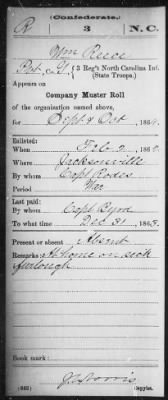 (Confederate.)
R 3 N.C.
Wm Reece
Pvt, Co. G, 3 Reg't North Carolina Inf.
(State Troops.)
Appears on
Company Muster Roll
of the organization named above,
for Sept & Oct, 186
Enlisted:
When Feb 2, 186
Where Jacksonville
By whom Capt Rodes
Period War
Last paid:
By whom Capt Byrd
To what time Dec 31, 1863.
Present or absent Absent
Remarks: At home on sick
furlough
Book mark:
Copyist.